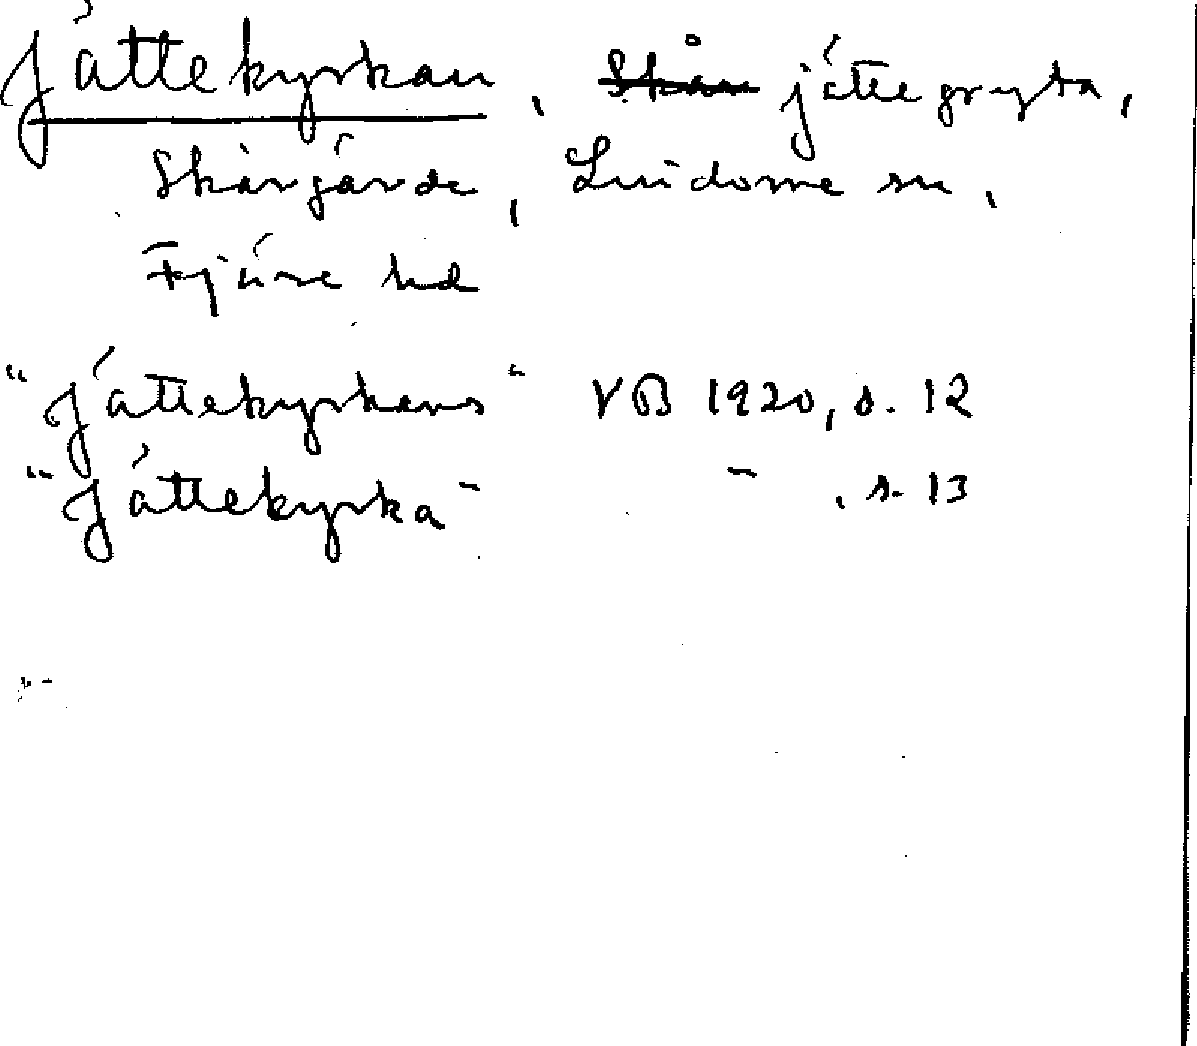 Jättekyrkan, Skån jättegryta,
Skårgärde, Lindome sn,
Fjäre hd
"Jättekyrkans" VB 1920, s. 12
"Jättekyrka" - " - , s. 13